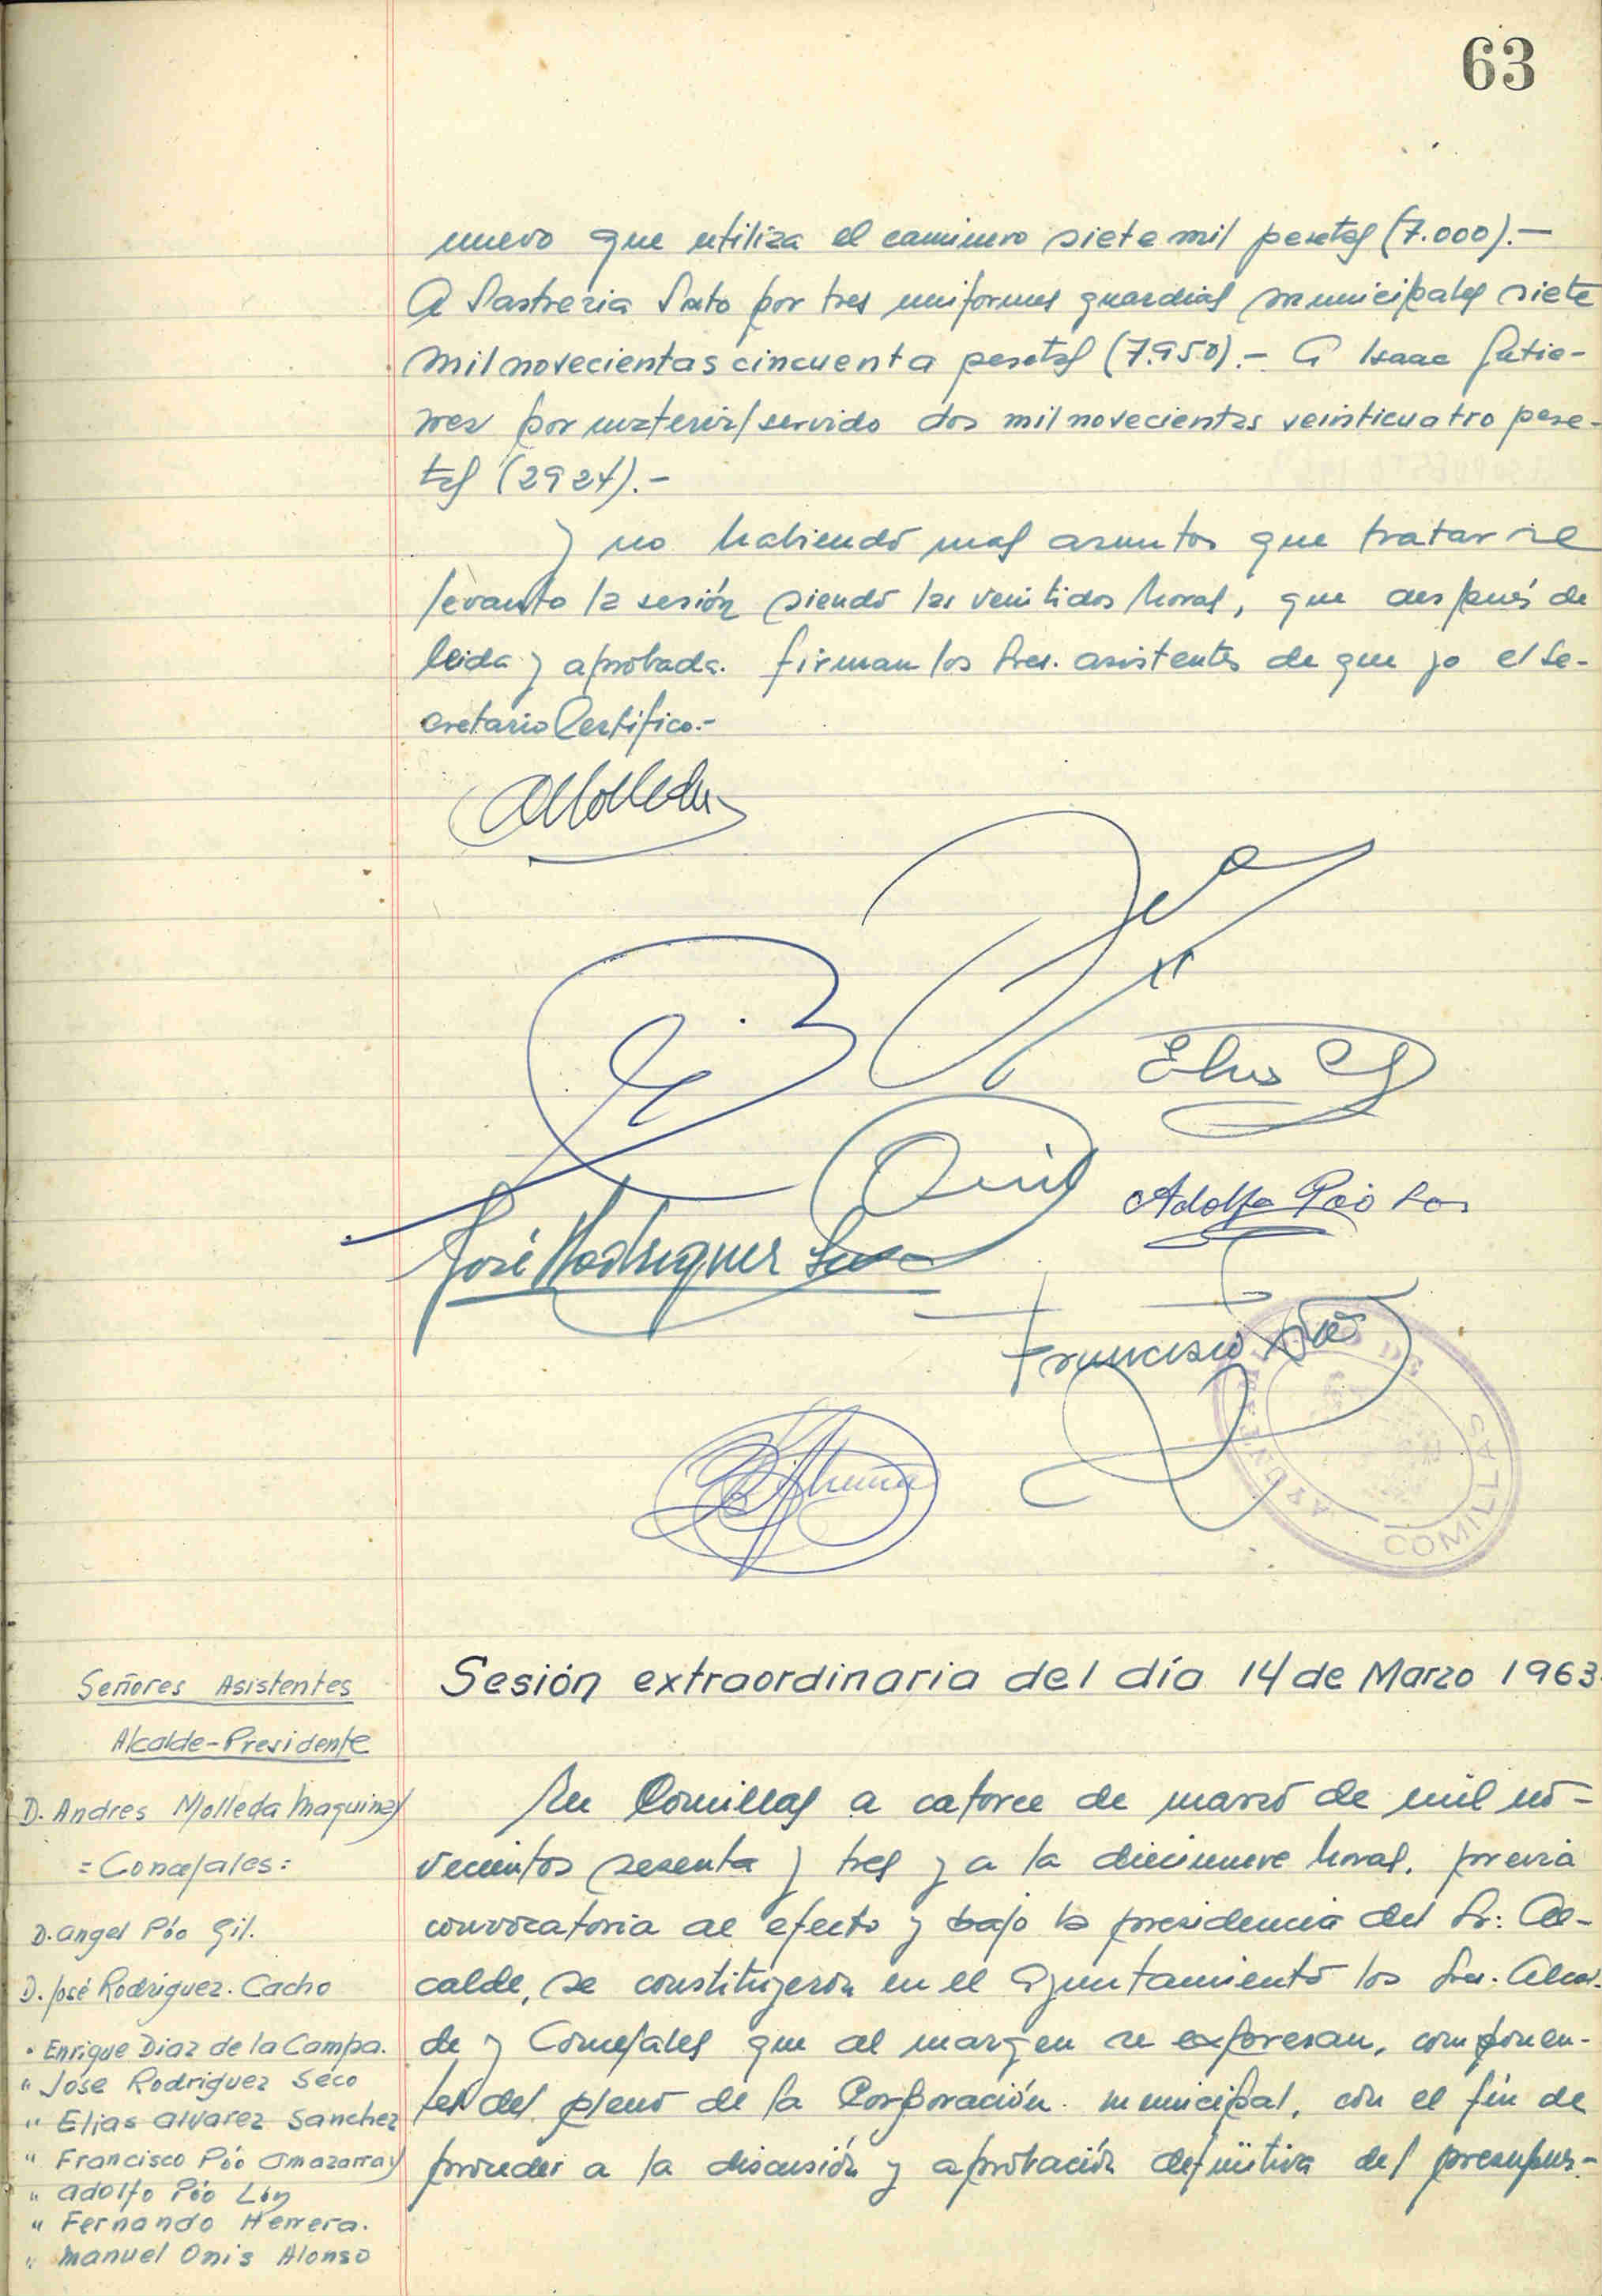 63
nuevo que utiliza el caminero siete mil pesetas (7.000).-
A Sastreria Soto por tres uniformes guardias municipales siete
mil novecientas cincuenta pesetas (7.950).- A Isaac Gutie-
rrez por material servido dos mil novecientas veinticuatro pese-
tas (2924).-
Y no habiendo mas asuntos que tratar se
levanto la sesión siendo las veintidos horas, que después de
leida y aprobada. firman los Sres. asistentes de que yo el Se-
cretario Certifico.-
AMolleda
Elias
José Rodriguez Seco
Adolfo Póo
Francisco Póo
AYUNTAMIENTO DE COMILLAS
Señores Asistentes
Alcalde-Presidente
D. Andres Molleda Maquinay
=Concejales:
D. Angel Póo Gil.
D. José Rodriguez. Cacho
" Enrique Diaz de la Campa.
" Jose Rodriguez Seco
" Elias Alvarez Sanchez
" Francisco Póo Amazarray
" Adolfo Póo
" Fernando Herrera.
" Manuel Onis Alonso
Sesión extraordinaria del día 14 de Marzo 1963.
En Comillas a catorce de marzo de mil no-
vecientos sesenta y tres y a la diecinueve horas. previa
convocatoria al efecto y bajo la presidencia del Sr: Al-
calde, se constituyerón en el Ayuntamiento los Sres. Alcal-
de y Concejales que al margen se expresan, componen-
tes del pleno de la Corporación municipal, con el fin de
proceder a la discusión y aprobación definitiva del presupues-